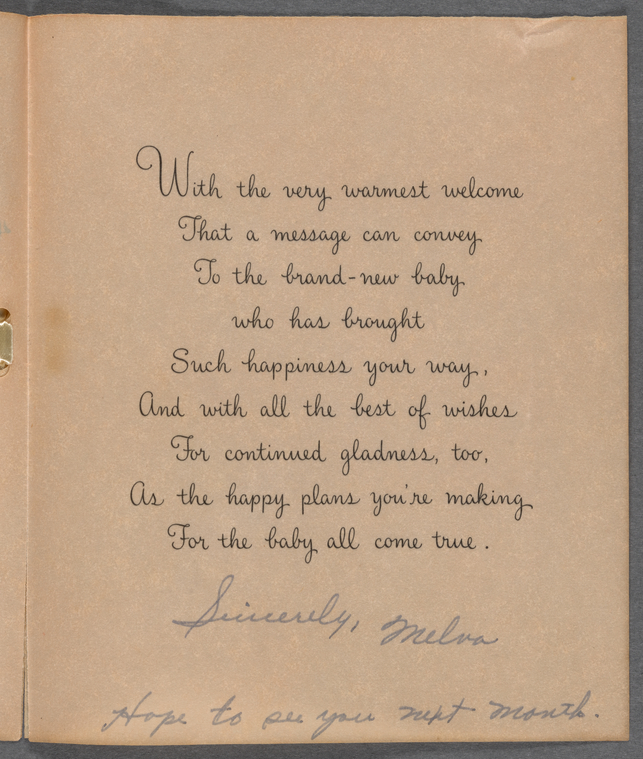 With the very warmest welcome
That a message can convey
To the brand-new baby
who has brought
Such happiness your way,
And with all the best of wishes
For continued gladness, too,
As the happy plans you're making
For the baby all come true.
Sincerely, Melva
Hope to see you next month.